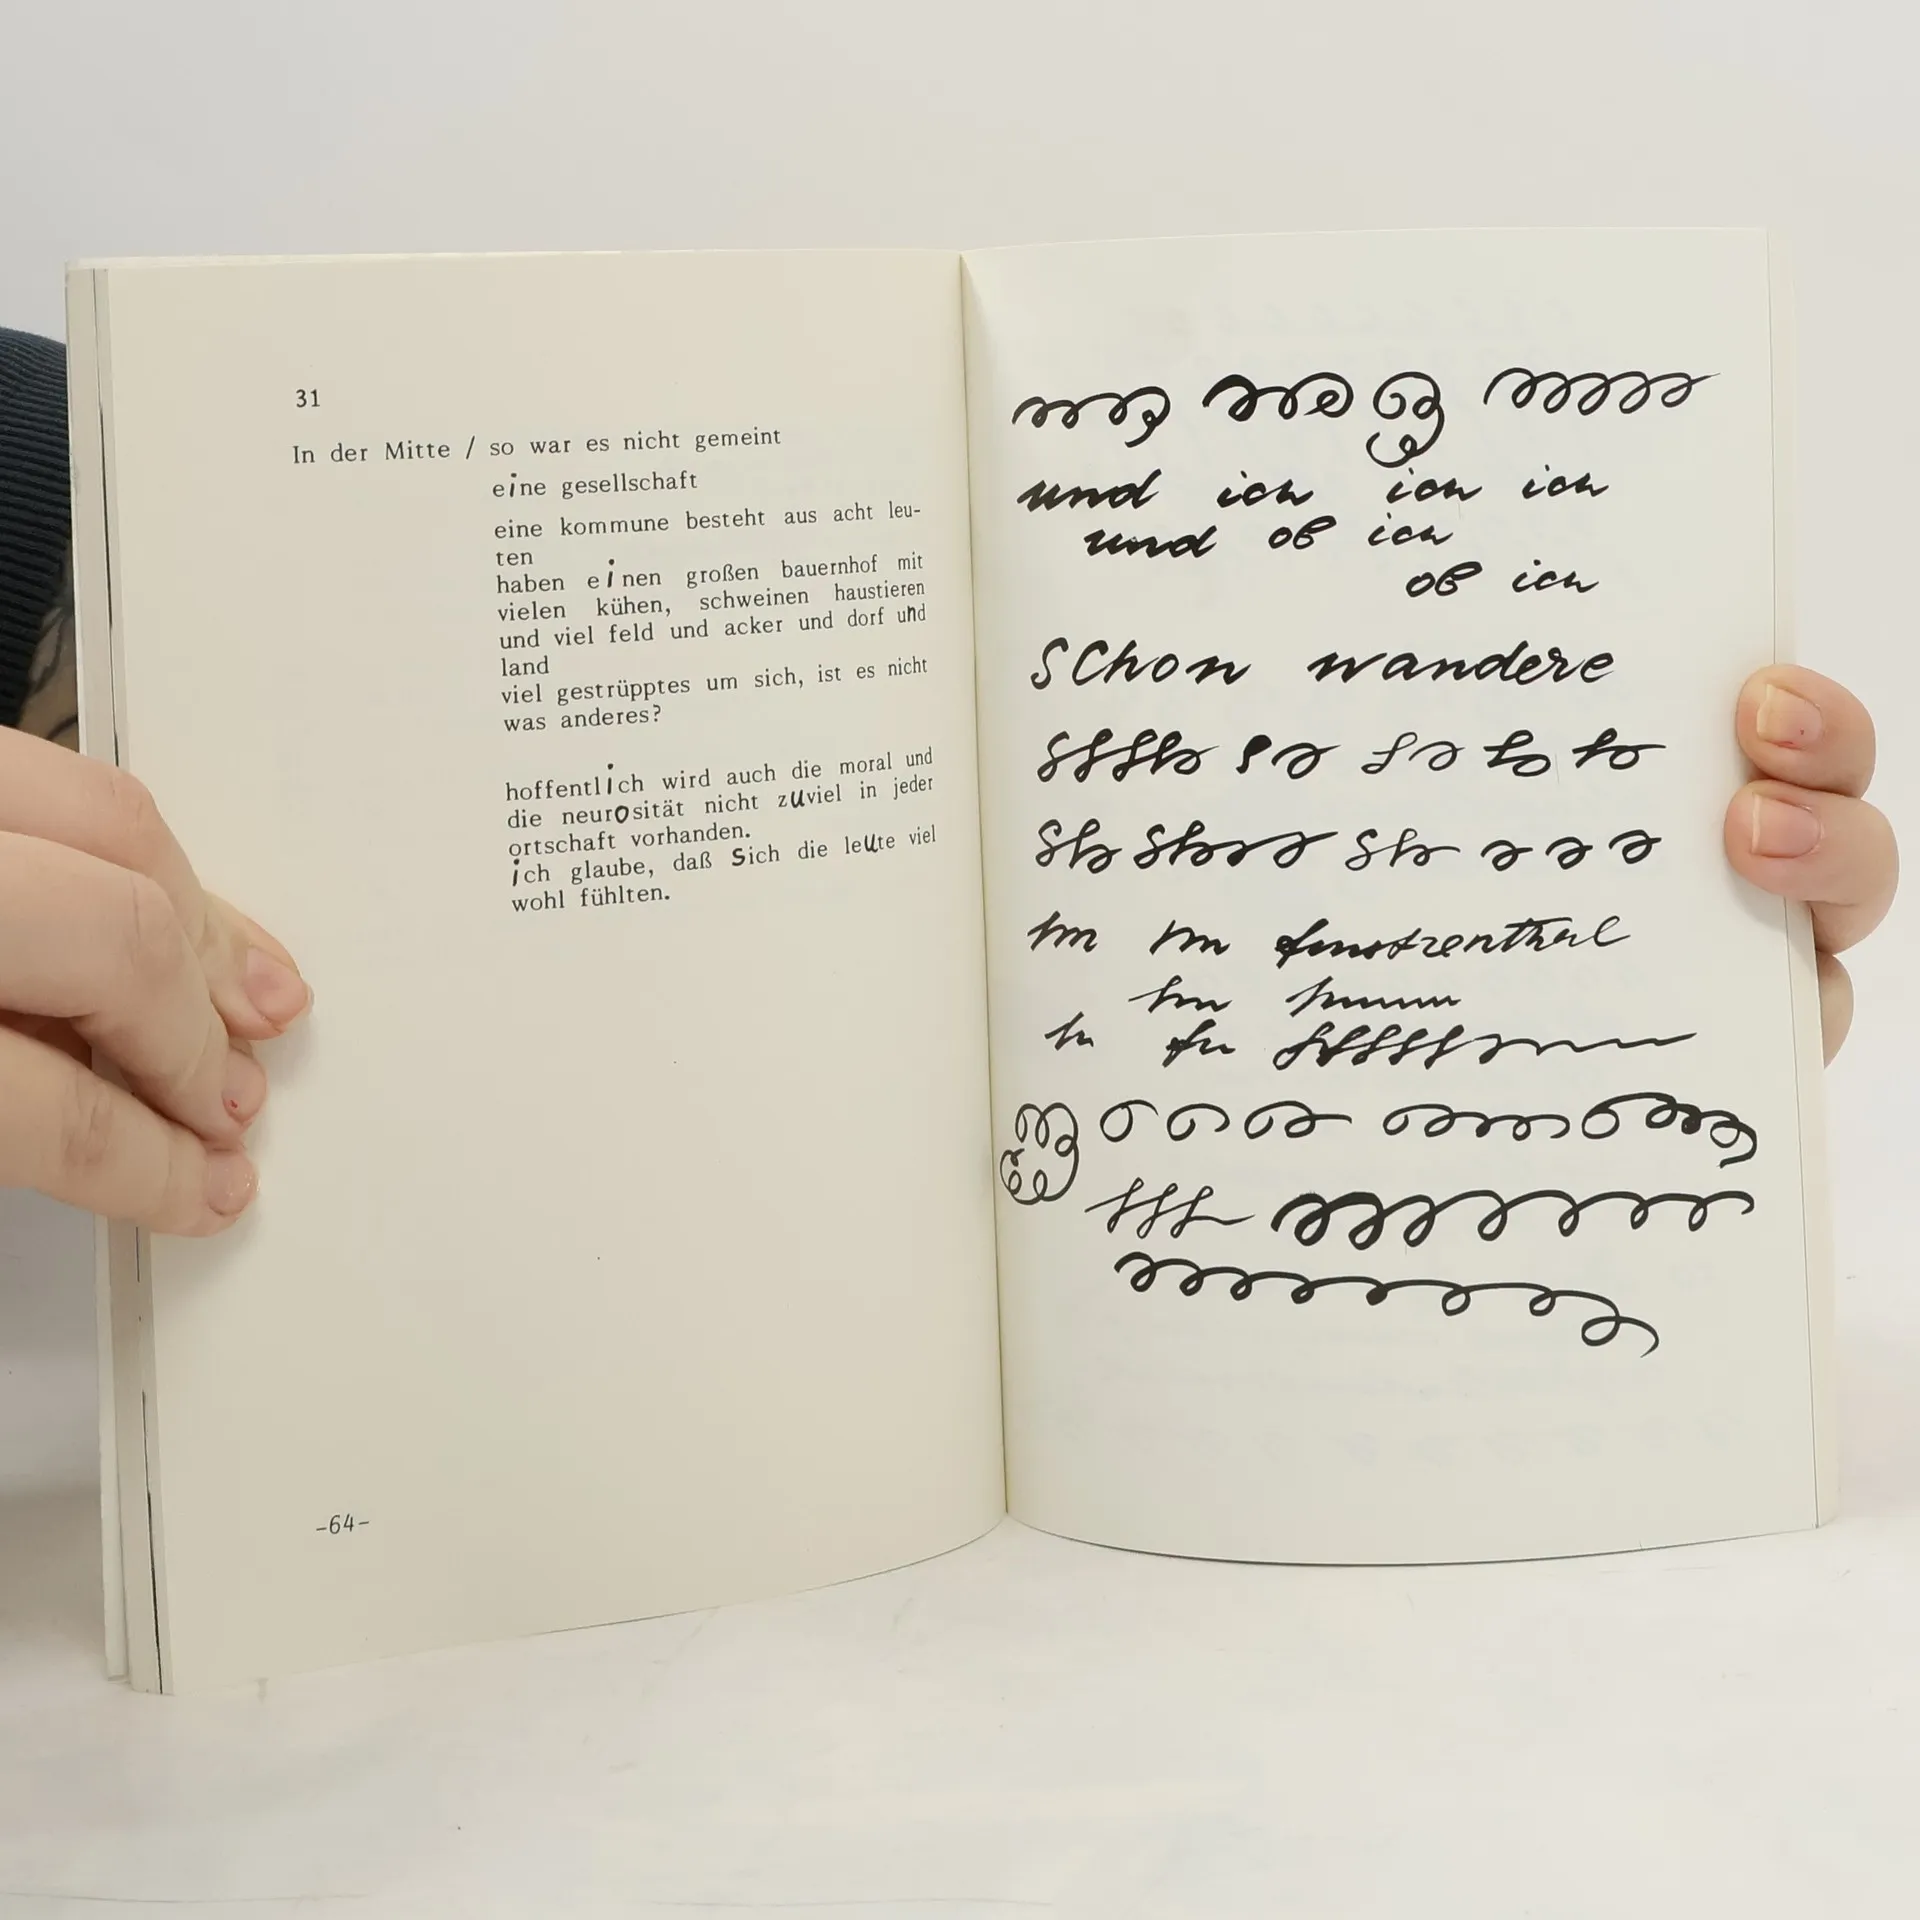 31
In der Mitte / so war es nicht gemeint
eine gesellschaft
eine kommune besteht aus acht leu-
ten
haben einen großen bauernhof mit
vielen kühen, schweinen haustieren
und viel feld und acker und dorf und
land
viel gestrüpptes um sich, ist es nicht
was anderes?
hoffentlich wird auch die moral und
die neurosität nicht zuviel in jeder
ortschaft vorhanden.
ich glaube, daß Sich die leute viel
wohl fühlten.
-64-
und ich ich ich
und ob ich
ob ich
schon wandere